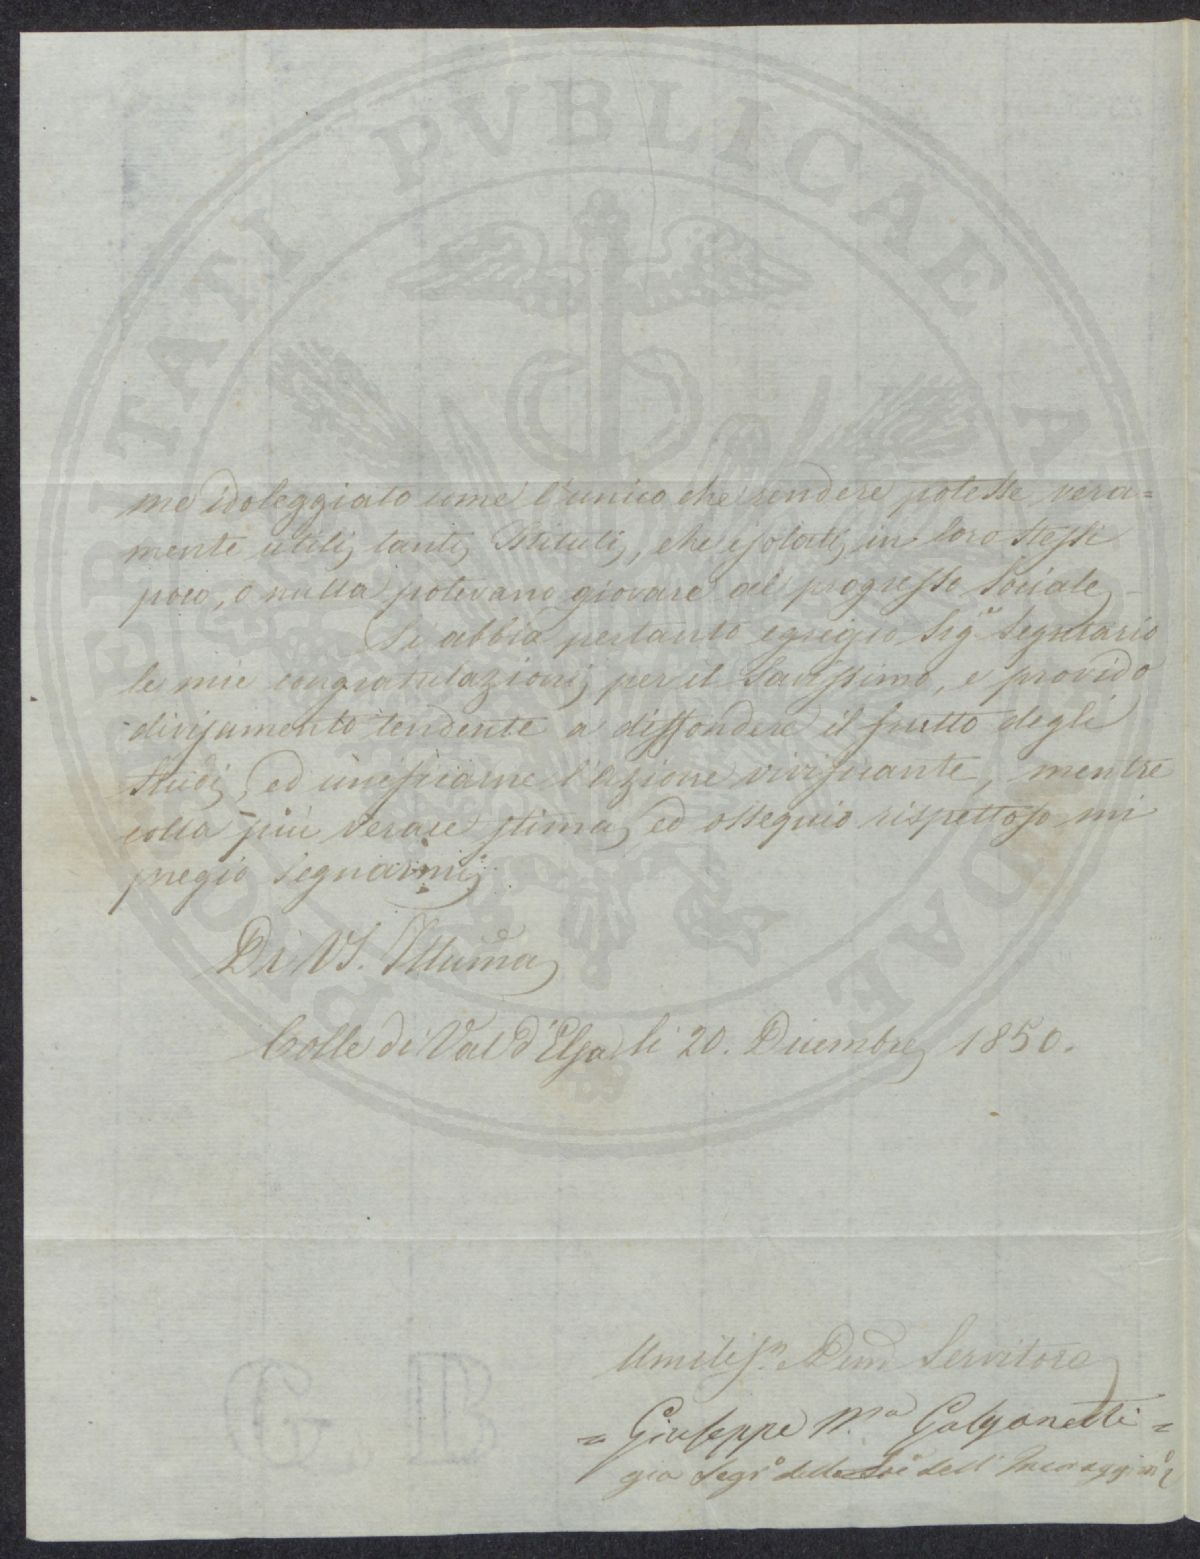 PROSPERITATI PVBLICAE AVGENDAE
me idoleggiato come l'unico che rendere potesse vera=
mente utili tanti Istituti, che isolati in loro stessi
poco, o nulla potevano giovare al progresso sociale
Si abbia pertanto egregio Sig.r Segretario
le mie congratulazioni per il savissimo, e provido
divisamento tendente a diffondere il frutto degli
studi, ed unificarne l'azione vivificante, mentre
colla più verace stima, ed ossequio rispettoso mi
pregio segnarmi
Di VS. Illuma
Colle di Val d'Elsa li 20. Dicembre 1850.
Umiliss.o Devmo Servitore
= Giuseppe M.a Galganetti =
già Segr.o della Soc. dell'
G. B